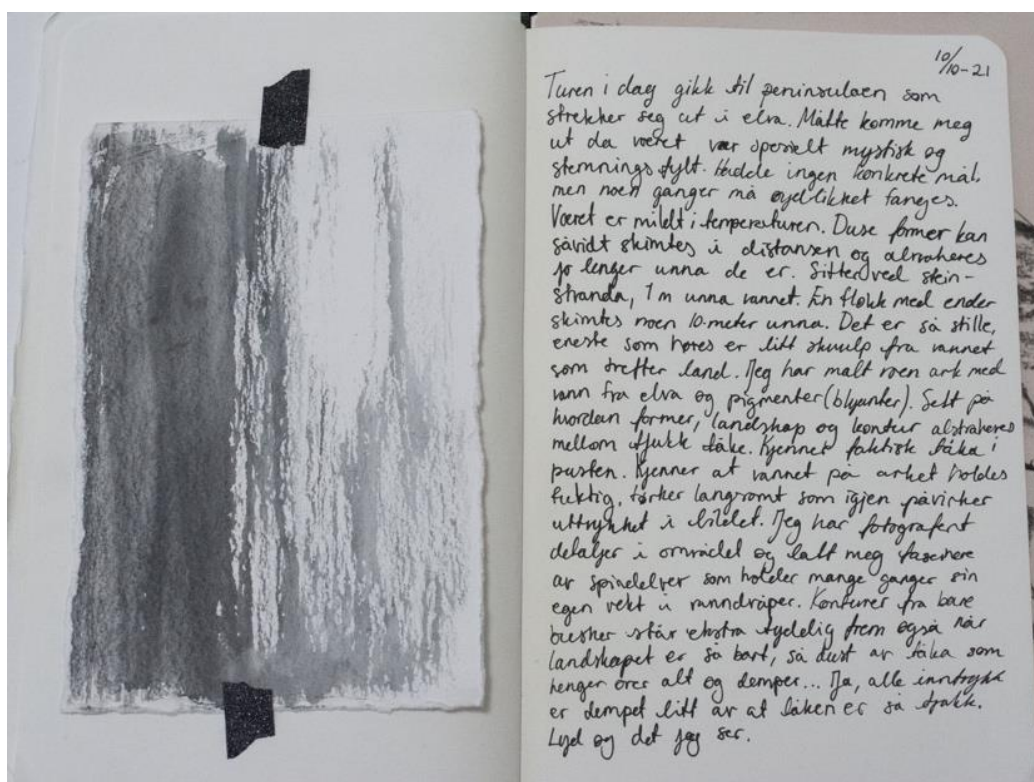 10/10-21
Turen i dag gikk til peninsulaen som
strekker seg ut i elva. Måtte komme meg
ut da været var spesielt mystisk og
stemningsfylt. Hadde ingen konkrete mål,
men noen ganger må øyeblikket fanges.
Været er mildt i temperaturen. Duse former kan
såvidt skimtes i distansen og abstraheres
jo lenger unna de er. Sitter ved stein-
stranda, 1 m unna vannet. En flokk med ender
skimtes noen 10-meter unna. Det er så stille,
eneste som høres er litt skvulp fra vannet
som treffer land. Jeg har malt noen ark med
vann fra elva og pigmenter (blyanter). Sett på
hvordan former, landskap og kontur abstraheres
mellom tjukk tåke. Kjenner faktisk tåka i
pusten. Kjenner at vannet på arket holdes
fuktig, tørker langsomt som igjen påvirker
uttrykket i bildet. Jeg har fotografert
detaljer i området og latt meg fascinere
av spindelver som holder mange ganger sin
egen vekt i vanndråper. Konturer fra bare
busker står ekstra tydelig frem også når
landskapet er så bart, så dust av tåka som
henger over alt og demper... Ja, alle inntrykk
er dempet litt av at tåken er så tjukk.
Lyd og det jeg ser.